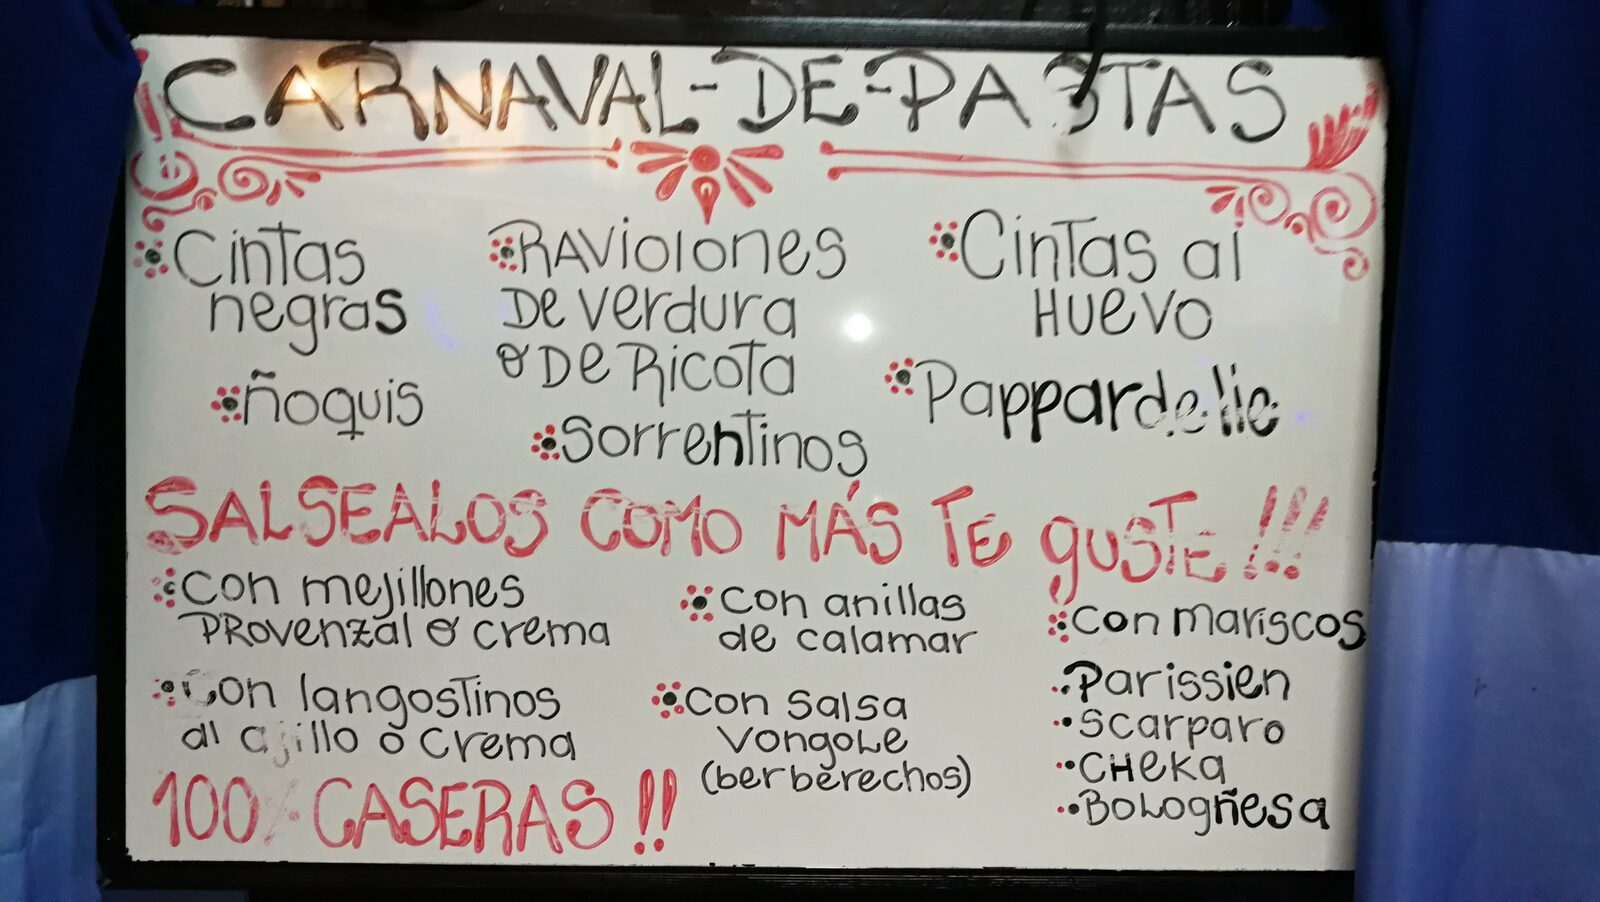 CARNAVAL-DE-PASTAS
Cintas
negras
Ñoquis
RAViolones
De verdura
o De Ricota
Sorrentinos
Cintas al
Huevo
Pappardelle
SALSEALOS COMO MÁS TE GUSTE!!!
con mejillones
PROvenzal o crema
con langostinos
al ajillo o crema
con anillas
de calamar
con salsa
vongole
(berberechos)
con mariscos
Parissien
Scarparo
CHeka
Bologñesa
100% CASERAS!!